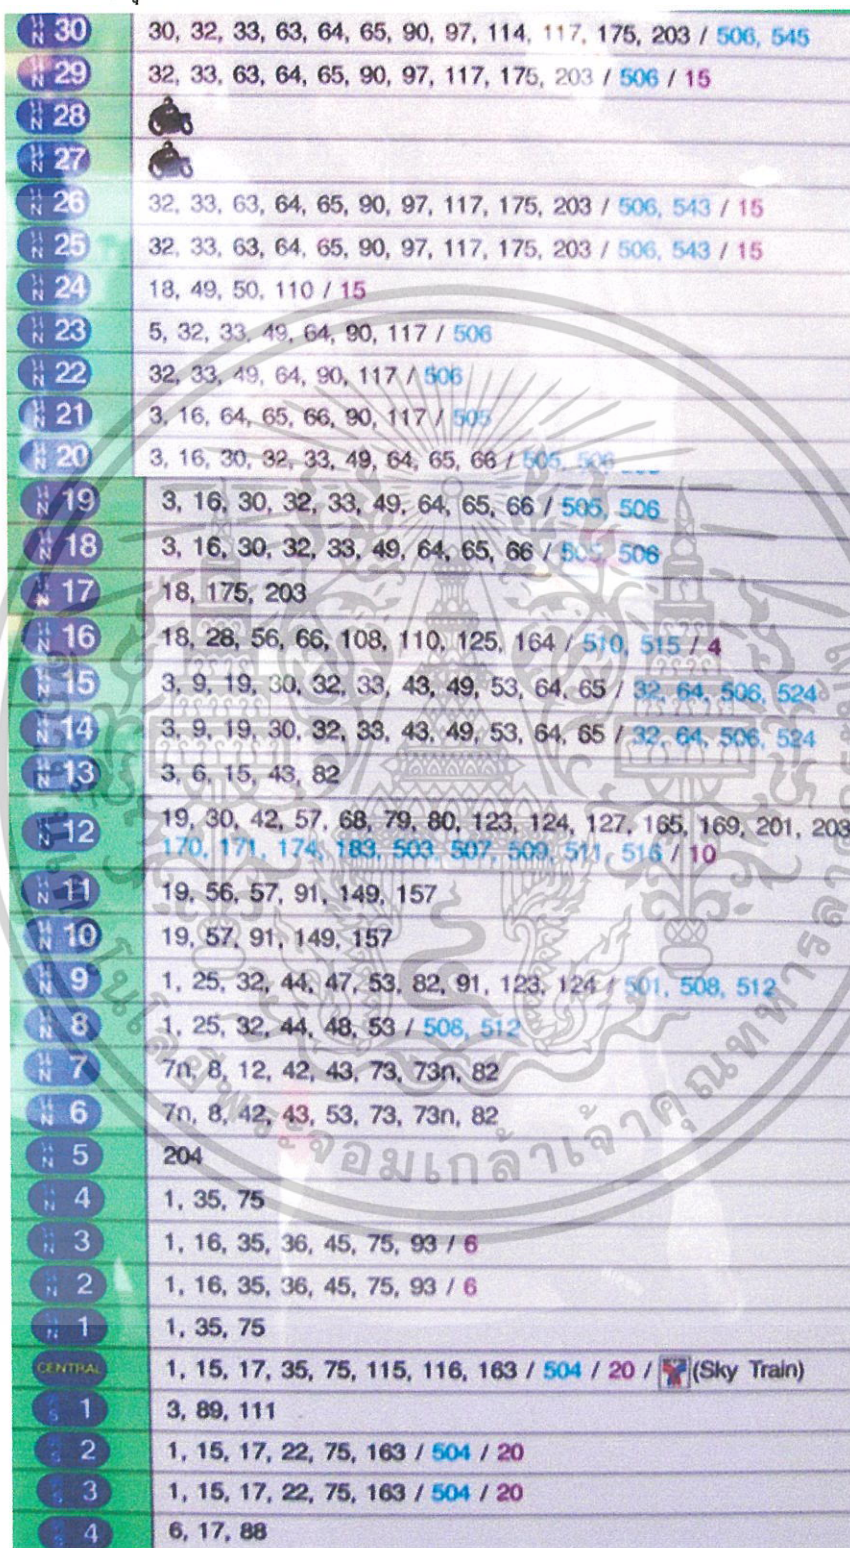 น N 30 30, 32, 33, 63, 64, 65, 90, 97, 114, 117, 175, 203 / 506, 545
น N 29 32, 33, 63, 64, 65, 90, 97, 117, 175, 203 / 506 / 15
น N 28
น N 27
น N 26 32, 33, 63, 64, 65, 90, 97, 117, 175, 203 / 506, 543 / 15
น N 25 32, 33, 63, 64, 65, 90, 97, 117, 175, 203 / 506, 543 / 15
น N 24 18, 49, 50, 110 / 15
น N 23 5, 32, 33, 49, 64, 90, 117 / 506
น N 22 32, 33, 49, 64, 90, 117 / 506
น N 21 3, 16, 64, 65, 66, 90, 117 / 505
น N 20 3, 16, 30, 32, 33, 49, 64, 65, 66 / 505, 506
น N 19 3, 16, 30, 32, 33, 49, 64, 65, 66 / 505, 506
น N 18 3, 16, 30, 32, 33, 49, 64, 65, 66 / 505, 506
น N 17 18, 175, 203
น N 16 18, 28, 56, 66, 108, 110, 125, 164 / 510, 515 / 4
น N 15 3, 9, 19, 30, 32, 33, 43, 49, 53, 64, 65 / 32, 64, 506, 524
น N 14 3, 9, 19, 30, 32, 33, 43, 49, 53, 64, 65 / 32, 64, 506, 524
น N 13 3, 6, 15, 43, 82
น N 12 19, 30, 42, 57, 68, 79, 80, 123, 124, 127, 165, 169, 201, 203
170, 171, 174, 183, 503, 507, 509, 511, 516 / 10
น N 11 19, 56, 57, 91, 149, 157
น N 10 19, 57, 91, 149, 157
น N 9 1, 25, 32, 44, 47, 53, 82, 91, 123, 124 / 501, 508, 512
น N 8 1, 25, 32, 44, 48, 53 / 508, 512
น N 7 7ก, 8, 12, 42, 43, 73, 73ก, 82
น N 6 7ก, 8, 42, 43, 53, 73, 73ก, 82
น N 5 204
น N 4 1, 35, 75
น N 3 1, 16, 35, 36, 45, 75, 93 / 6
น N 2 1, 16, 35, 36, 45, 75, 93 / 6
น N 1 1, 35, 75
CENTRAL 1, 15, 17, 35, 75, 115, 116, 163 / 504 / 20 / (Sky Train)
S 1 3, 89, 111
S 2 1, 15, 17, 22, 75, 163 / 504 / 20
S 3 1, 15, 17, 22, 75, 163 / 504 / 20
S 4 6, 17, 88